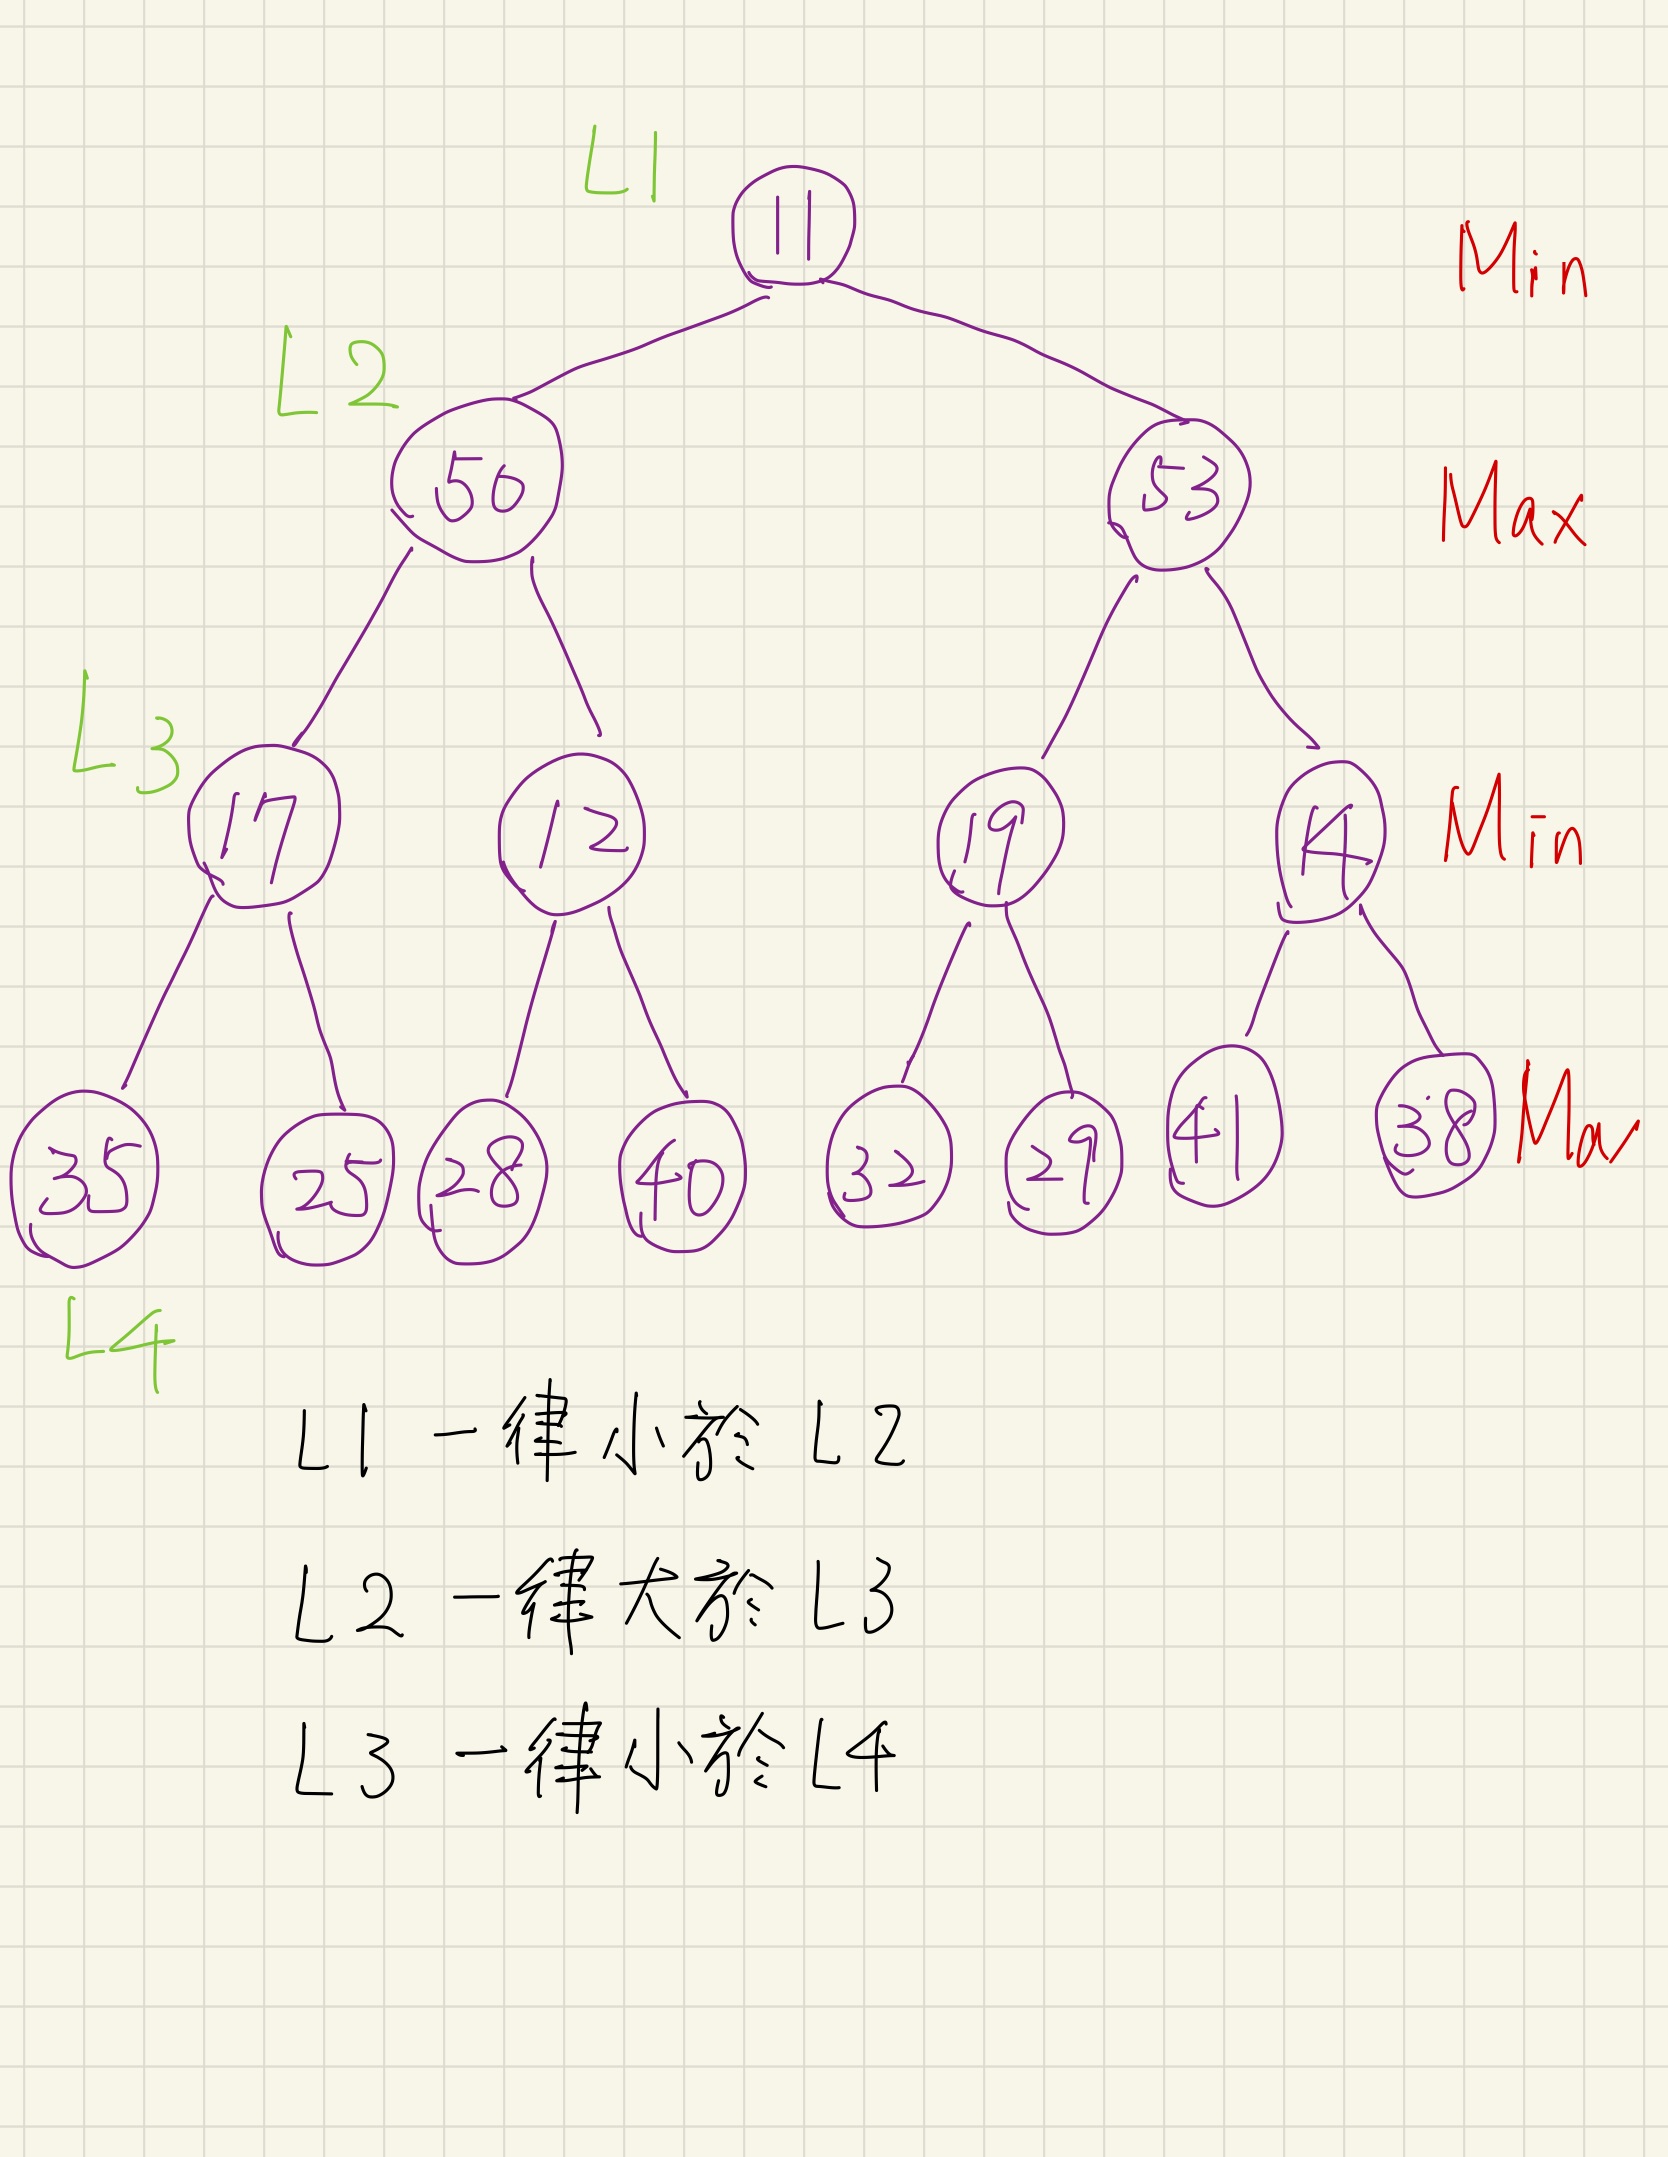 L1
11
Min
L2
56
53
Max
L3
17
12
19
14
Min
35
25
28
40
32
29
41
38
Max
L4
L1 一律小於 L2
L2 一律大於 L3
L3 一律小於 L4